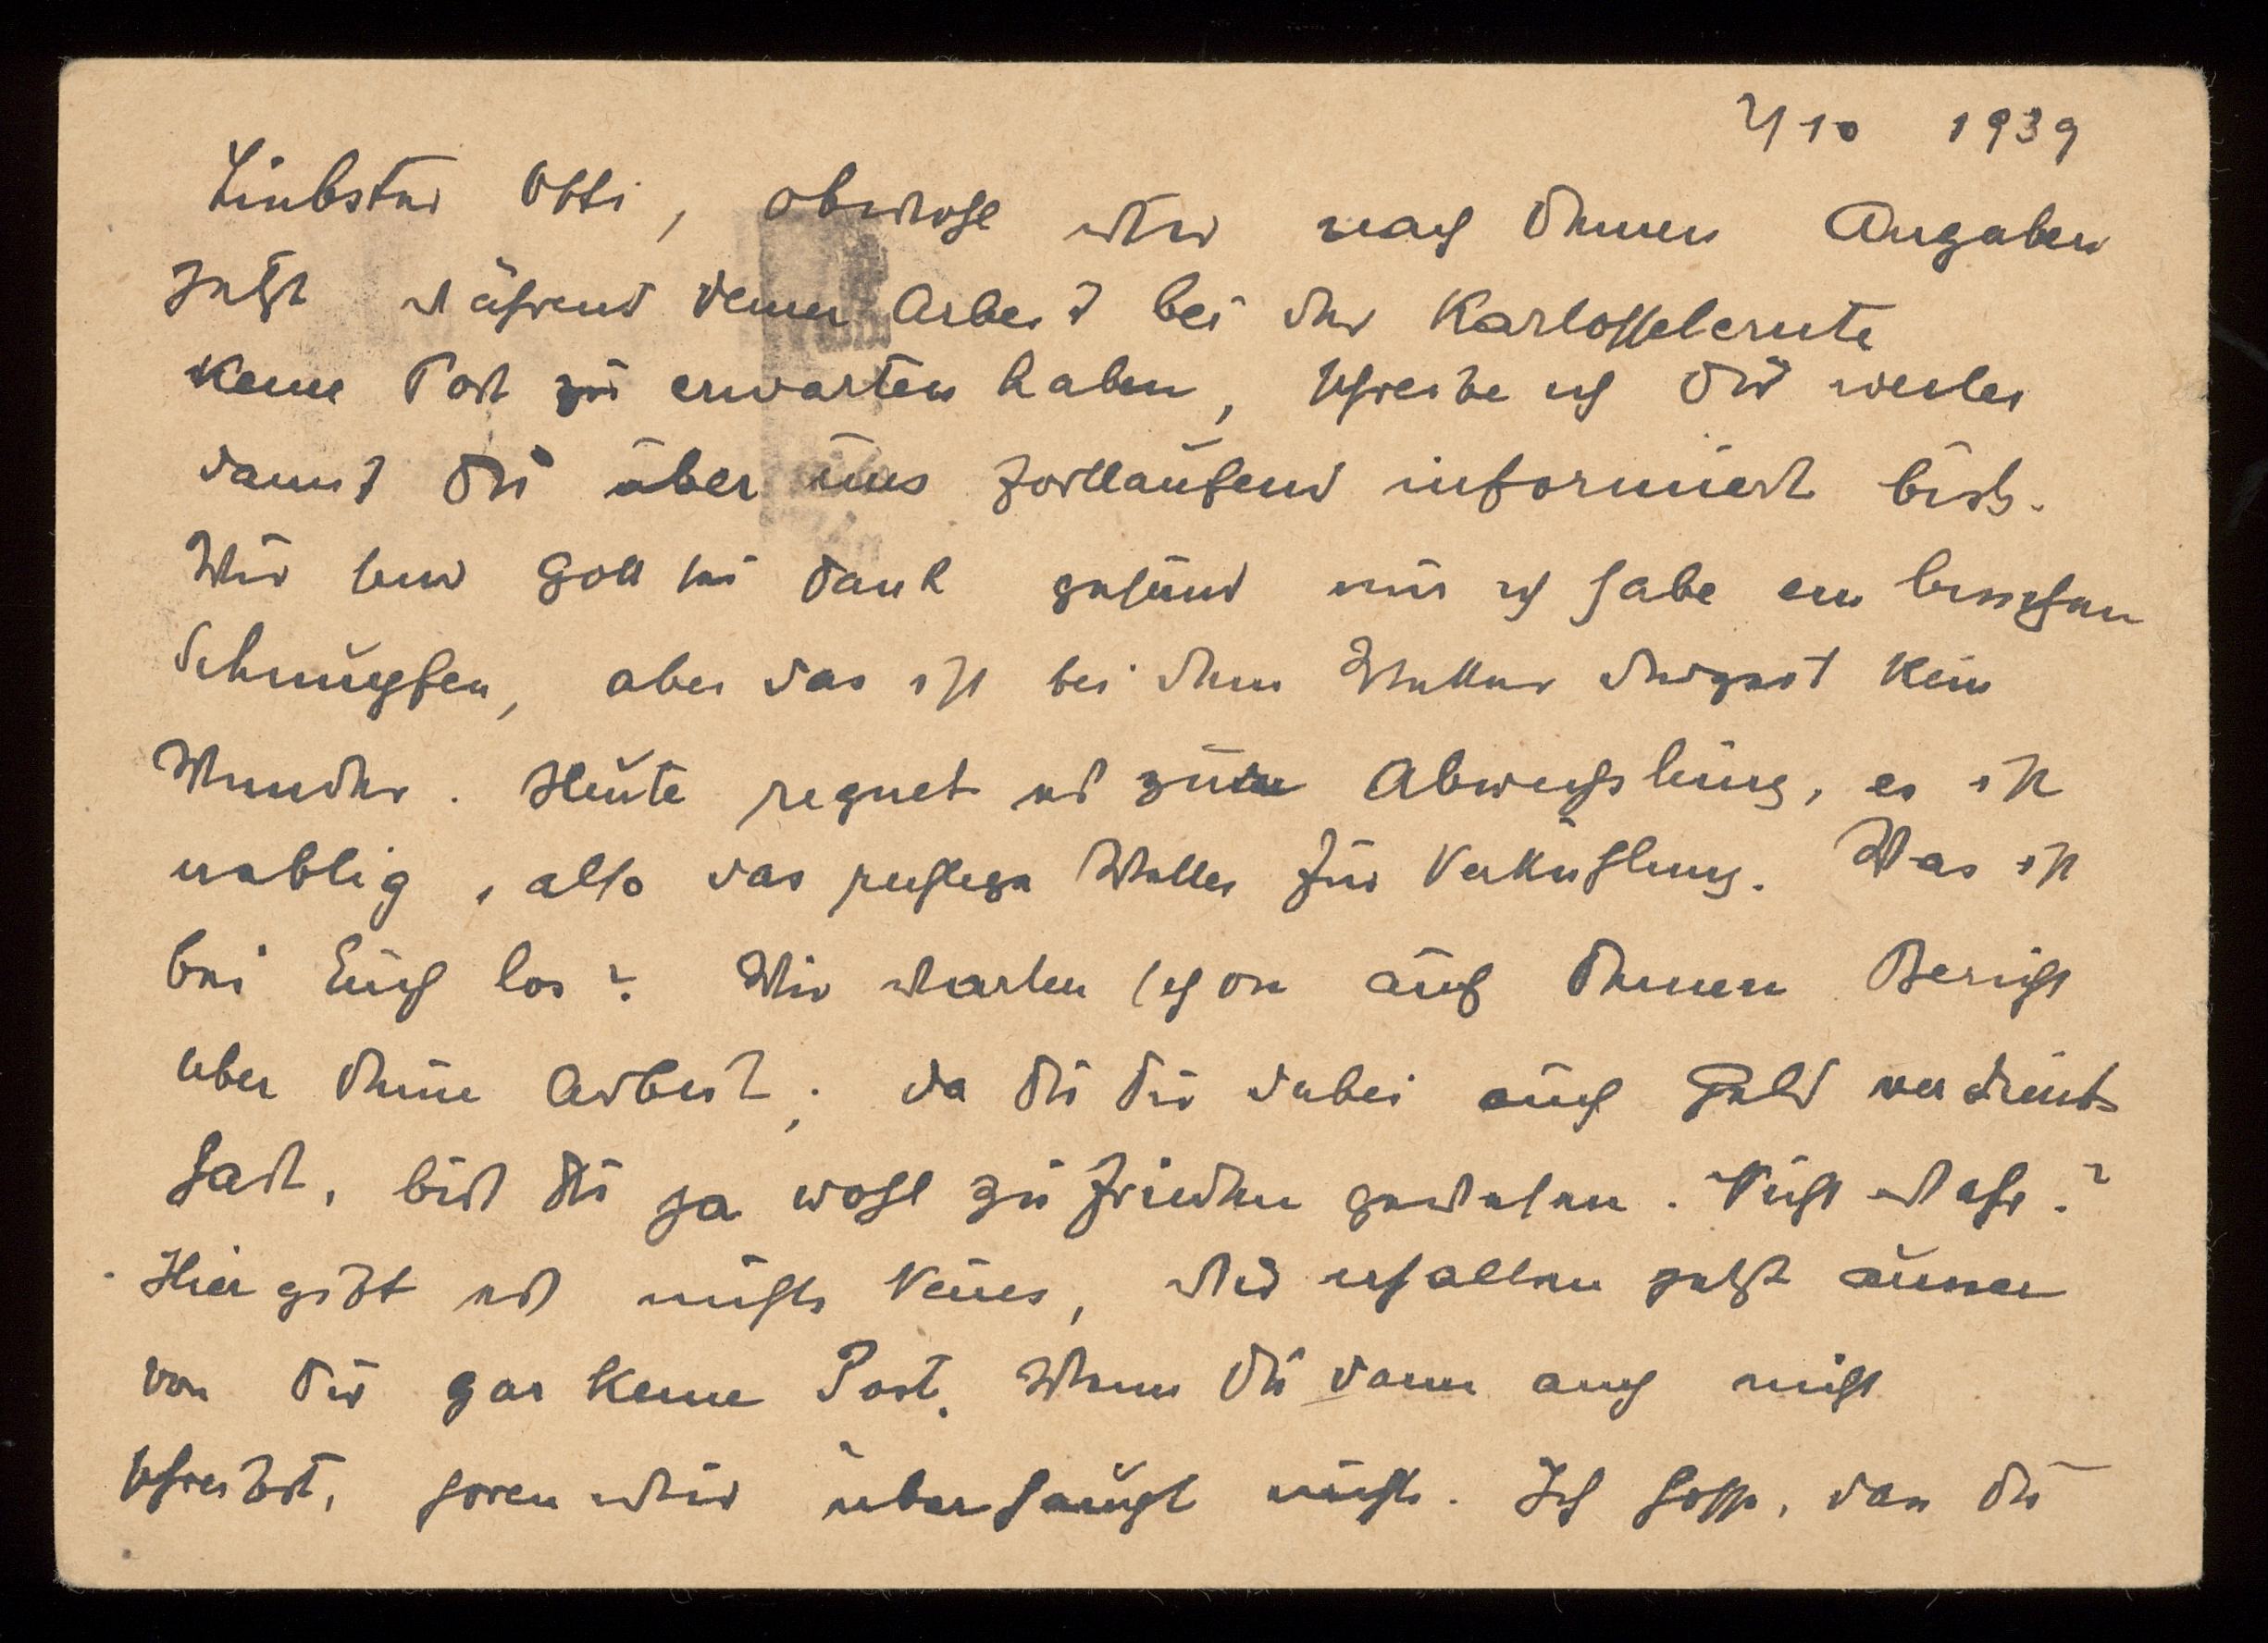 2/10 1939
Liebster Otti, obwohl wir nach Deinen Angaben
jetzt während Deiner Arbeit bei der Kartoffelernte
keine Post zu erwarten haben, schreibe ich Dir weiter
damit Du über uns fortlaufend informiert bist.
Wir sind Gott sei dank gesund nur ich habe ein bisschen
Schnupfen, aber das ist bei dem Wetter derzeit kein
Wunder. Heute regnet es zur Abwechslung, es ist
neblig, also das richtige Wetter für Verkühlung. Was ist
bei Euch los? Wir warten schon auf Deinen Bericht
über Deine Arbeit; da Du Dir dabei auch Geld verdient
hast, bist Du ja wohl zufrieden gewesen. Nicht wahr?
Hier gibt es nichts Neues, wir erhalten jetzt ausser
von Dir gar keine Post. Wenn Du dann auch nicht
schreibst, hören wir überhaupt nichts. Ich hoffe, dass Du